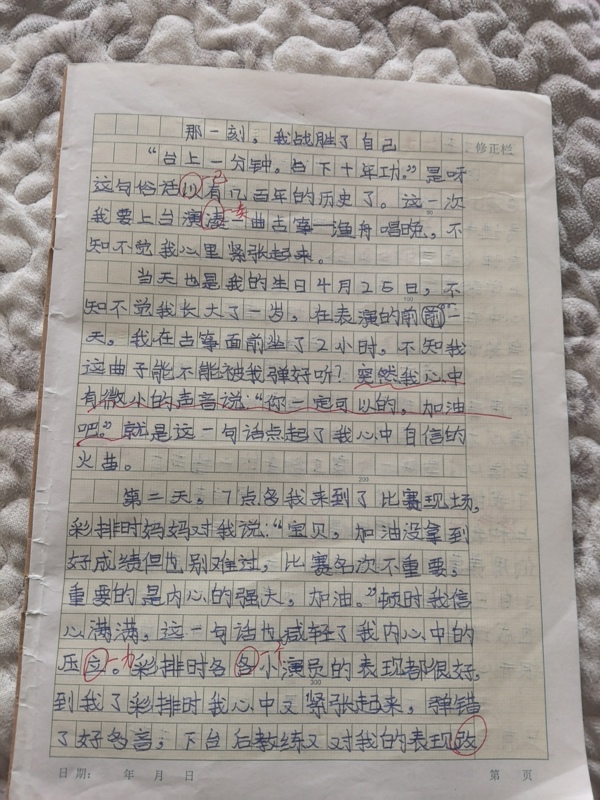 那一刻，我战胜了自己
修正栏
“台上一分钟。台下十年功。”是呀
这句俗话以有几百年的历史了。这一次
已
我要上台演凑一曲古筝渔舟唱晚，不
奏
知不觉我心里紧张起来。
当天也是我的生日4月25日，不
知不觉我长大了一岁。在表演的前前一
100
天。我在古筝面前坐了2小时，不知我
这曲子能不能被我弹好听？突然我心中
有微小的声音说：“你一定可以的。加油
吧。”就是这一句话点起了我心中自信的
火苗。
200
第二天，7点多我来到了比赛现场，
彩排时妈妈对我说：“宝贝，加油没拿到
好成绩但也别难过，比赛名次不重要，
重要的是内心的强大，加油。”顿时我信
心满满，这一句话也减轻了我内心中的
压立。彩排时各各小演员的表现都很好，
力
个
300
到我了彩排时我心中又紧张起来，弹错
了好多音，下台后教练又对我的表现改
日期： 年 月 日
第 页